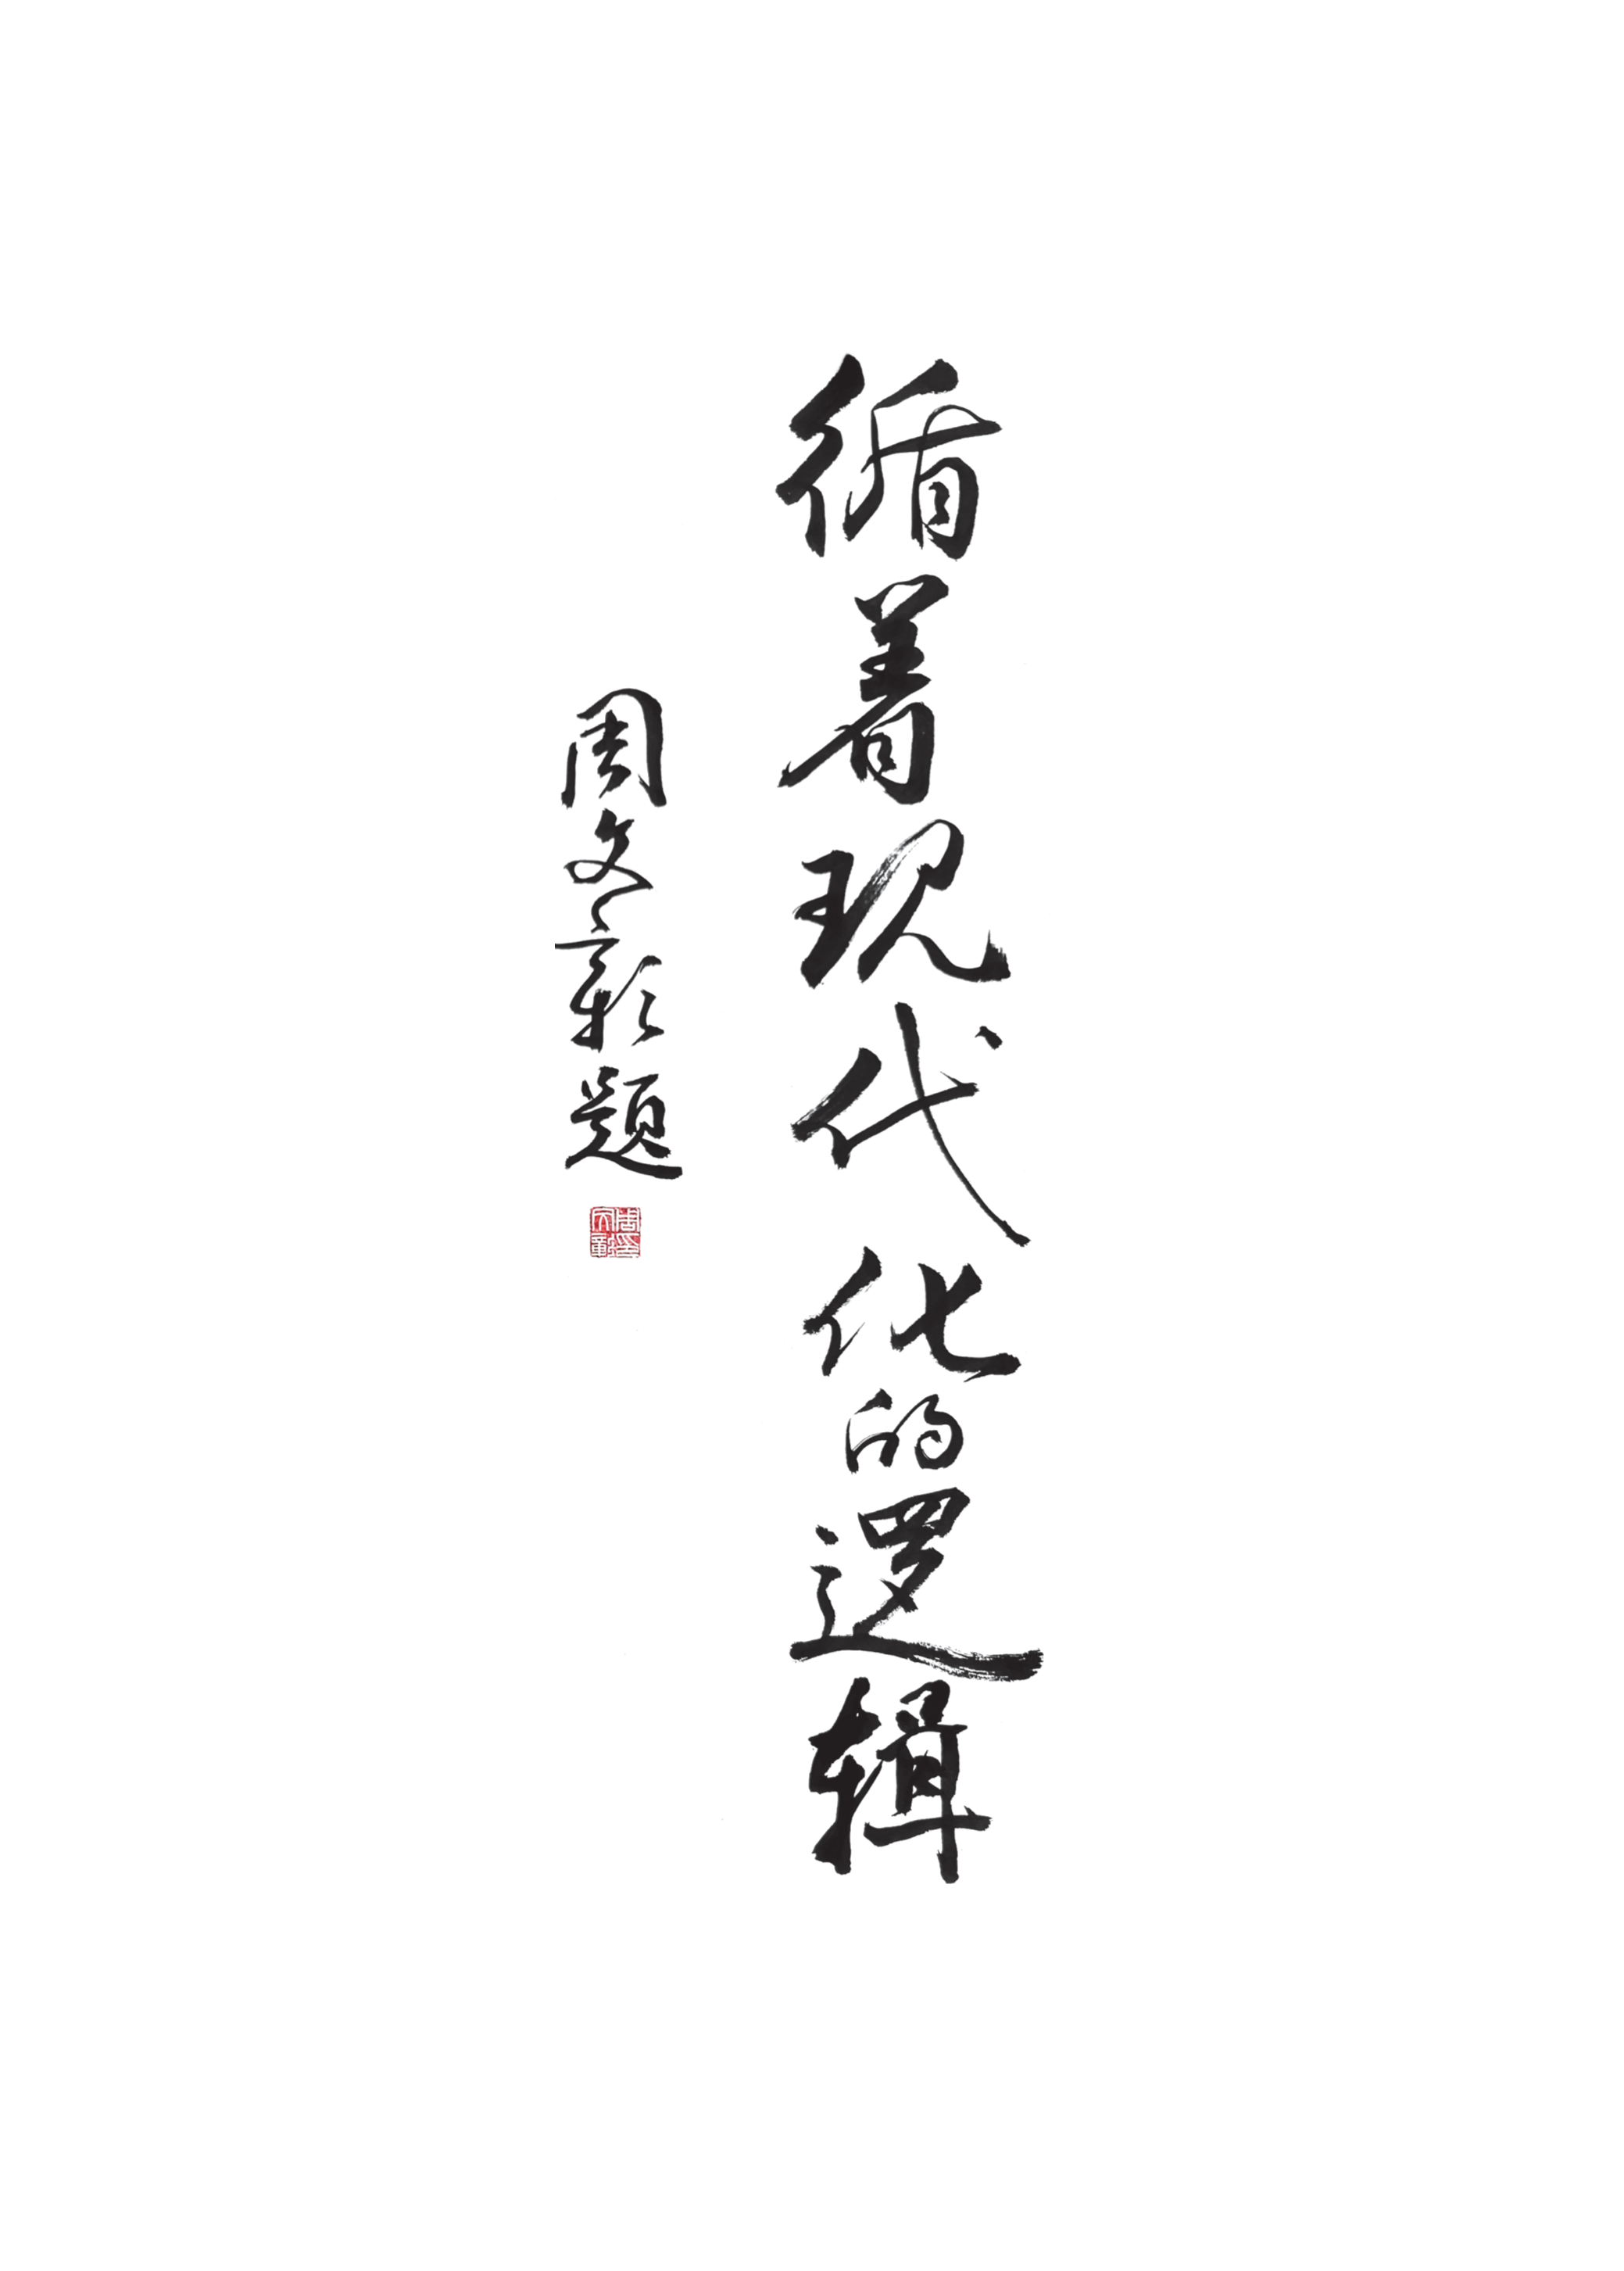 循着现代化的逻辑
周文彰题
周文彰印